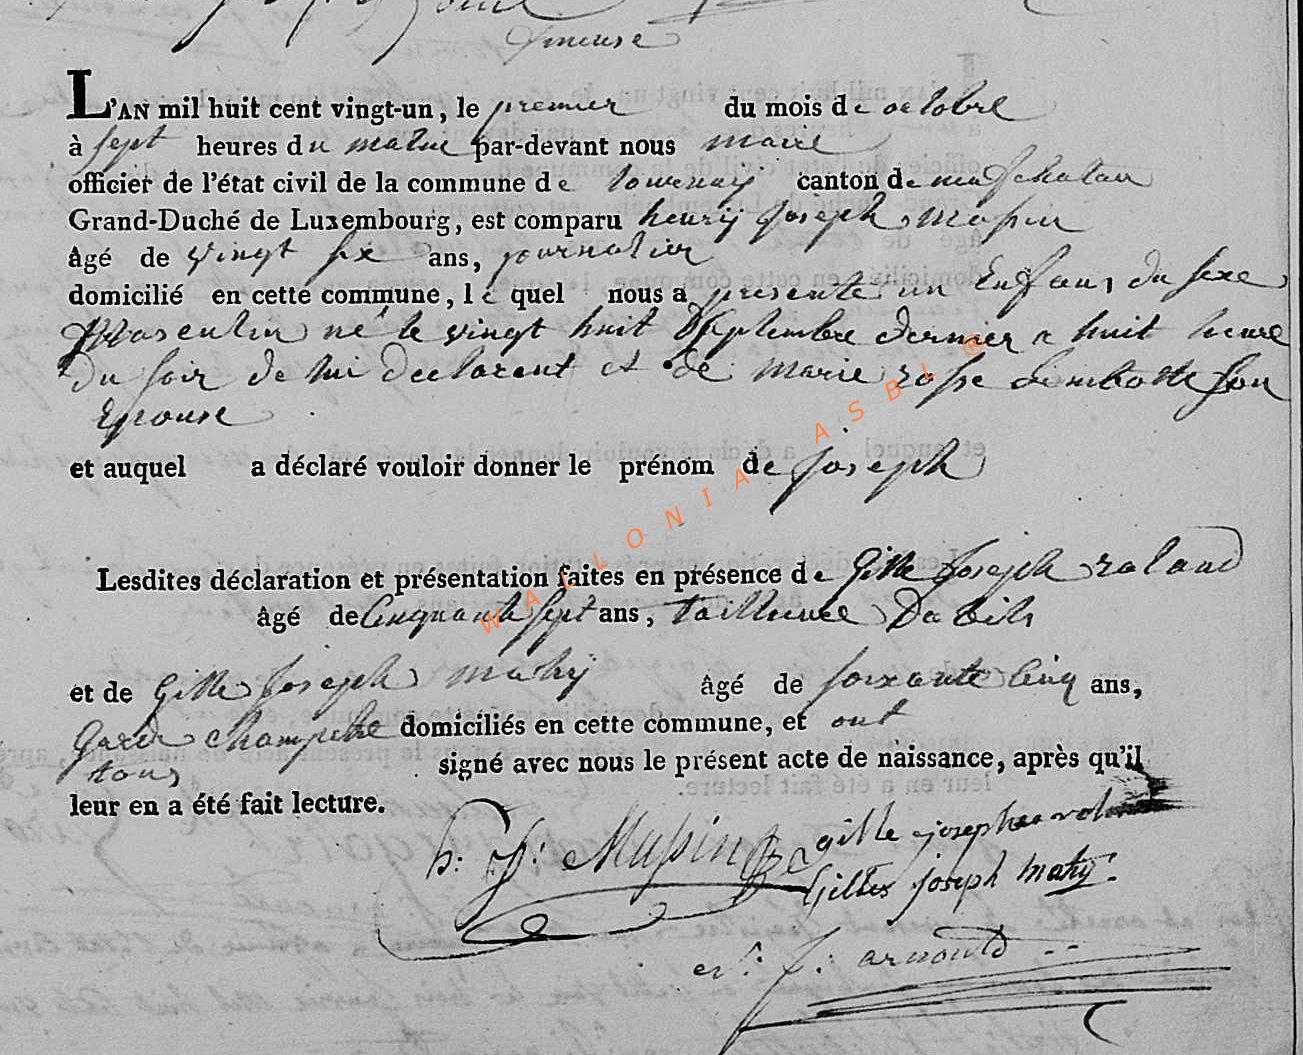 L'AN mil huit cent vingt-un, le premier du mois de octobre
à sept heures du matin par-devant nous maire
officier de l'état civil de la commune de tournay canton de
Grand-Duché de Luxembourg, est comparu henry Joseph Massin
âgé de vingt six ans, journalier
domicilié en cette commune, lequel nous a presenté un Enfant du sexe
Masculin né le vingt huit Septembre dernier a huit heure
du soir de lui declarant et de marie rosse son
Epouse
et auquel a déclaré vouloir donner le prénom de Joseph
Lesdites déclaration et présentation faites en présence de Gille Joseph roland
âgé de Cinquante sept ans, tailleure Dabits
et de Gille Joseph mahy âgé de soixante Cinq ans,
Garde champetre domiciliés en cette commune, et ont
tous signé avec nous le présent acte de naissance, après qu'il
leur en a été fait lecture.
h: J: Massin
gille joseph
Gilles joseph mahy
J: arnould
WALLONIA ASBL ®